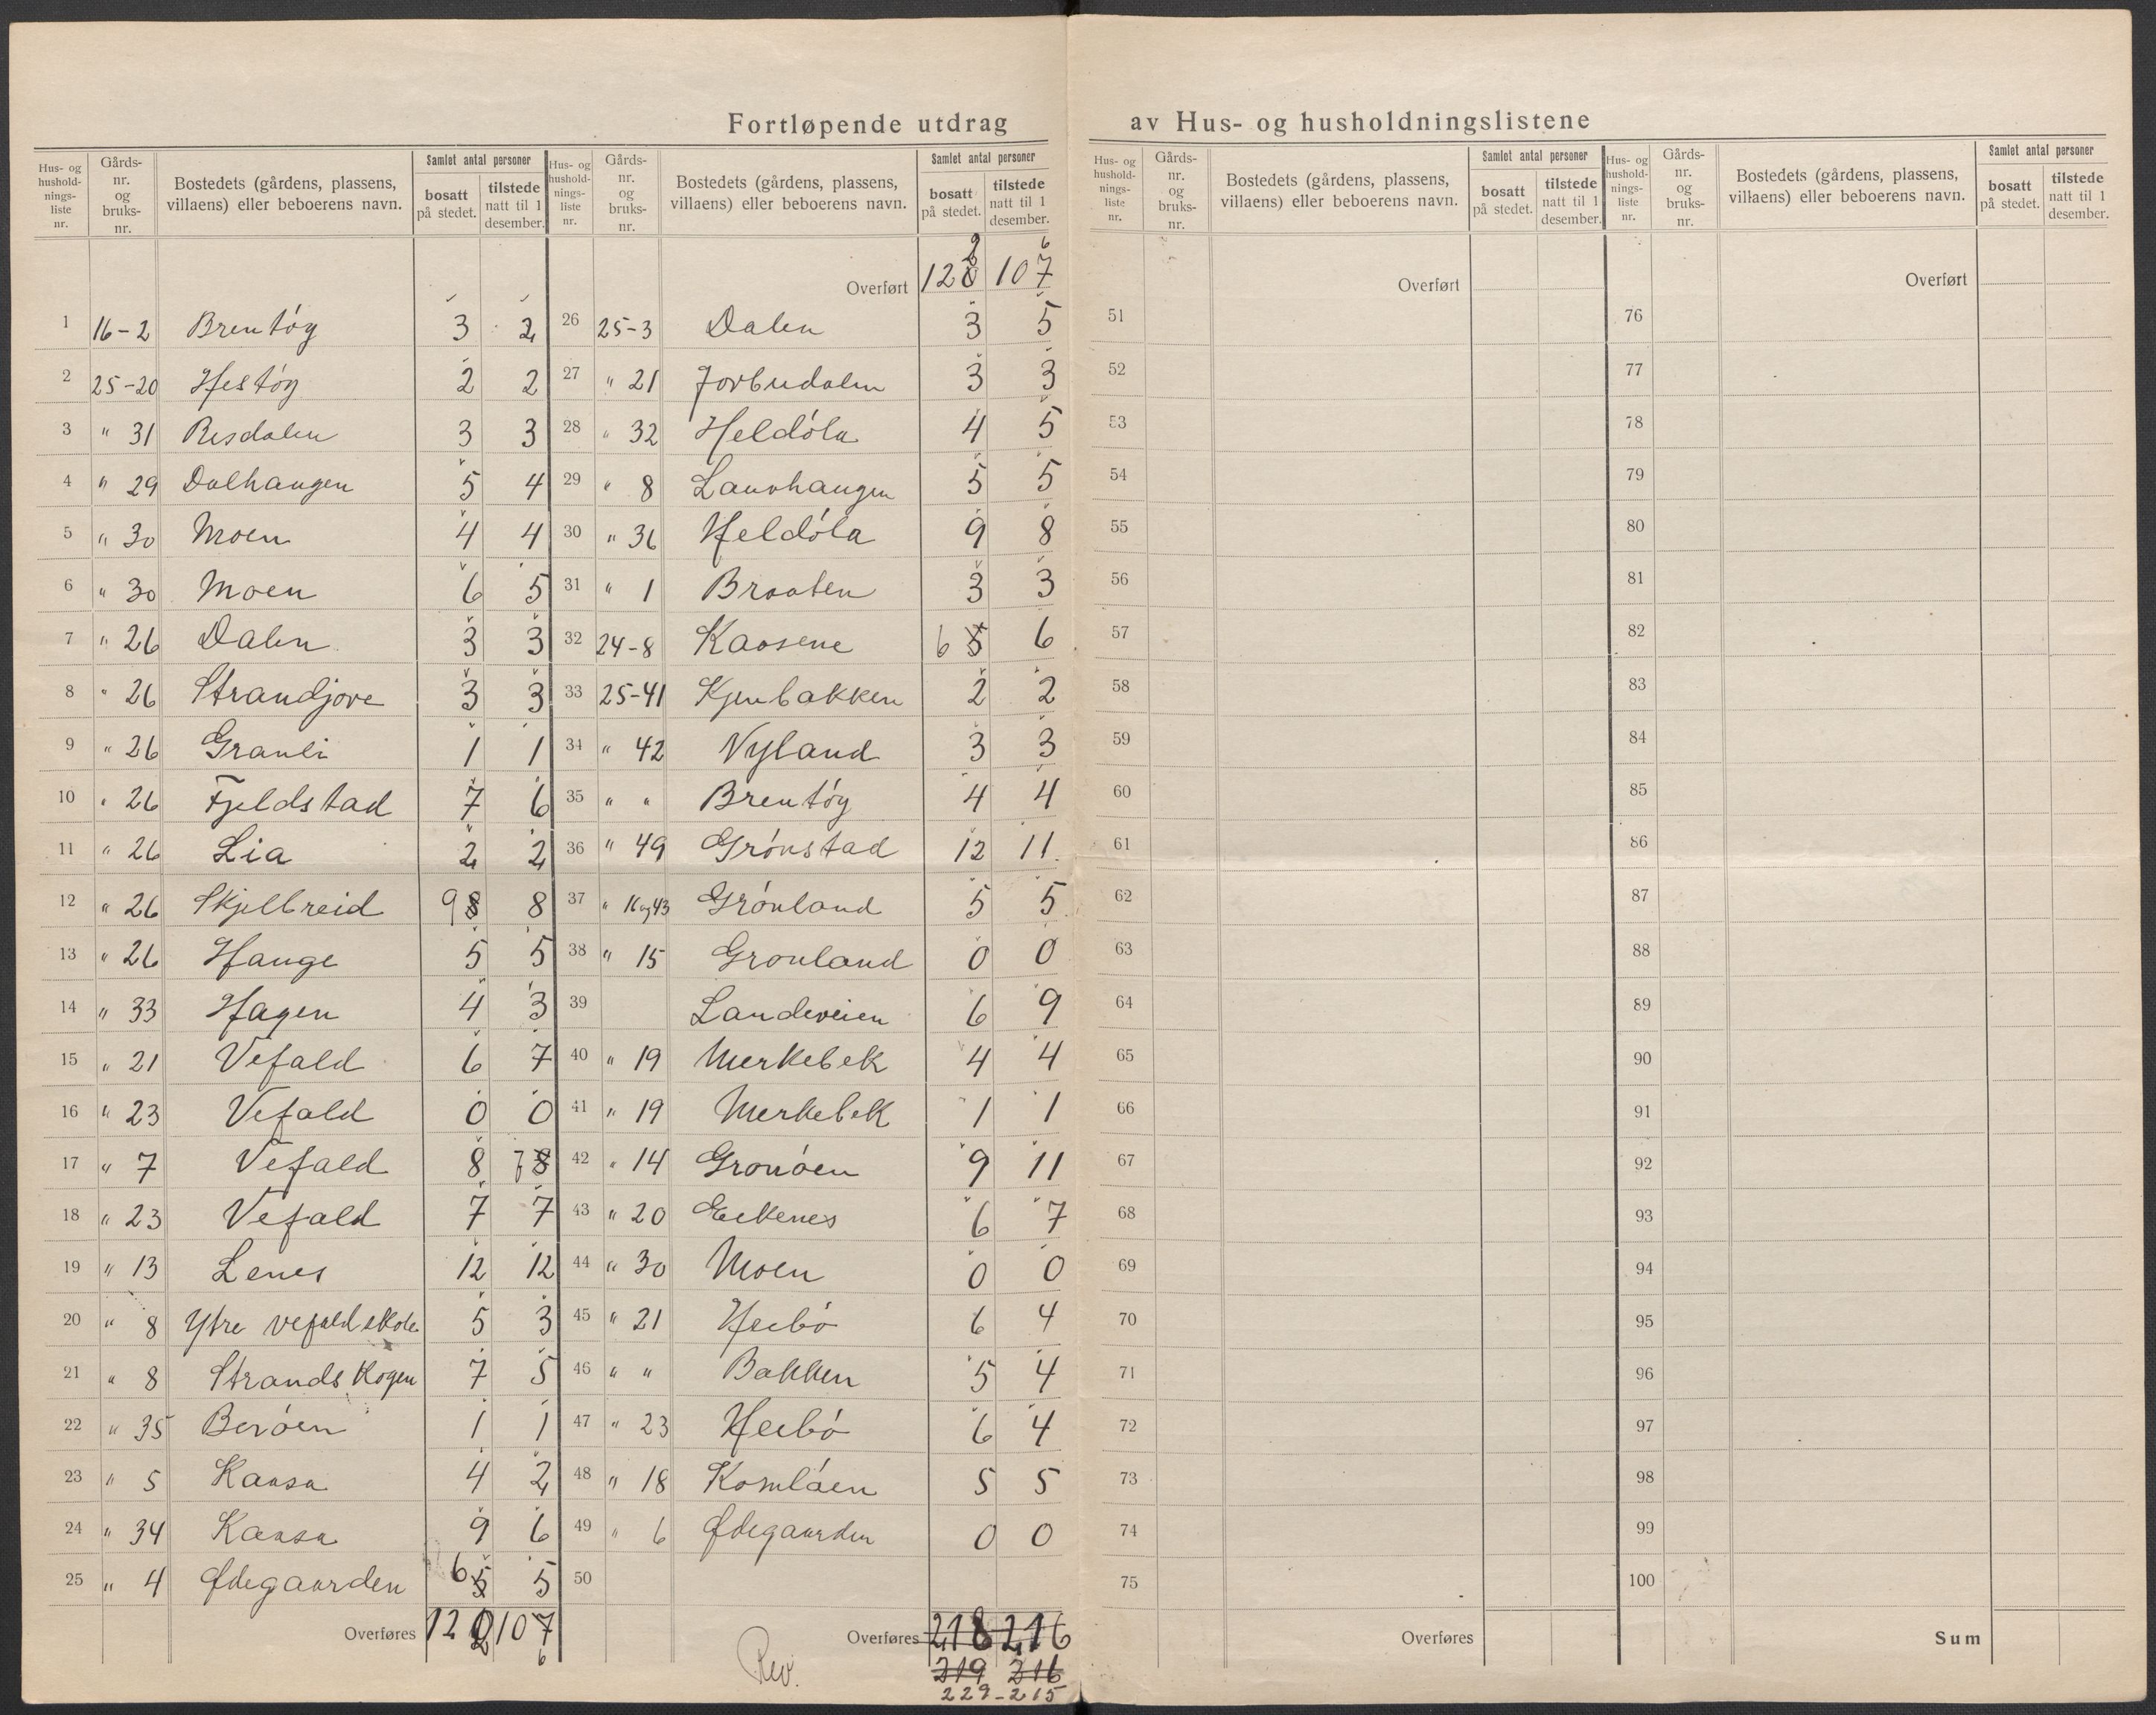 Fortløpende utdrag av Hus- og husholdningslistene
Hus- og hushold-nings-liste nr. | Gårds-nr. og bruks-nr. | Bostedets (gårdens, plassens, villaens) eller beboerens navn. | Samlet antal personer | bosatt på stedet. | tilstede natt til 1 desember.
1 16-2 Brentøg 3 2
2 25-20 Hestøg 2 2
3 " 31 Risdalen 3 3
4 " 29 Dalhaugen 5 4
5 " 30 Moen 4 4
6 " 30 Moen 6 5
7 " 26 Dalen 3 3
8 " 26 Strandjore 3 3
9 " 26 Granli 1 1
10 " 26 Fjeldstad 7 6
11 " 26 Lia 2 2
12 " 26 Skjelbreid 9 8 8
13 " 26 Hauge 5 5
14 " 33 Hagen 4 3
15 " 21 Vefald 6 7
16 " 23 Vefald 0 0
17 " 7 Vefald 8 7 8
18 " 23 Vefald 7 7
19 " 13 Lenes 12 12
20 " 8 Ytre Vefald skole 5 3
21 " 8 Strandskogen 7 5
22 " 35 Berøen 1 1
23 " 5 Kaasa 4 2
24 " 34 Kaasa 9 6
25 " 4 Ødegaarden 6 5 5
Overføres 120 107
2 6
Hus- og hushold-nings-liste nr. | Gårds-nr. og bruks-nr. | Bostedets (gårdens, plassens, villaens) eller beboerens navn. | Samlet antal personer | bosatt på stedet. | tilstede natt til 1 desember.
2 6
Overført 120 107
26 25-3 Dalen 3 5
27 " 21 Jorbudalen 3 3
28 " 32 Heldøla 4 5
29 " 8 Lauvhaugen 5 5
30 " 36 Heldøla 9 8
31 " 1 Braaten 3 3
32 24-8 Kaasene 6 5 6
33 25-41 Kjenbakken 2 2
34 " 42 Nyland 3 3
35 " " Brentøg 4 4
36 " 49 Grønstad 12 11
37 " 16 og 43 Grønland 5 5
38 " 15 Grønland 0 0
39 Landeveien 6 9
40 " 19 Merkebek 4 4
41 " 19 Merkebek 1 1
42 " 14 Gronøen 9 11
43 " 20 Eekenes 6 7
44 " 30 Moen 0 0
45 " 21 Heibø 6 4
46 " " Bakken 5 4
47 " 23 Heibø 6 4
48 " 18 Komløen 5 5
49 " 6 Ødegaarden 0 0
50
Overføres 218 216
Rev. 219 216
229-215
Hus- og hushold-nings-liste nr. | Gårds-nr. og bruks-nr. | Bostedets (gårdens, plassens, villaens) eller beboerens navn. | Samlet antal personer | bosatt på stedet. | tilstede natt til 1 desember.
Overført
51
52
53
54
55
56
57
58
59
60
61
62
63
64
65
66
67
68
69
70
71
72
73
74
75
Overføres
Hus- og hushold-nings-liste nr. | Gårds-nr. og bruks-nr. | Bostedets (gårdens, plassens, villaens) eller beboerens navn. | Samlet antal personer | bosatt på stedet. | tilstede natt til 1 desember.
Overført
76
77
78
79
80
81
82
83
84
85
86
87
88
89
90
91
92
93
94
95
96
97
98
99
100
Sum